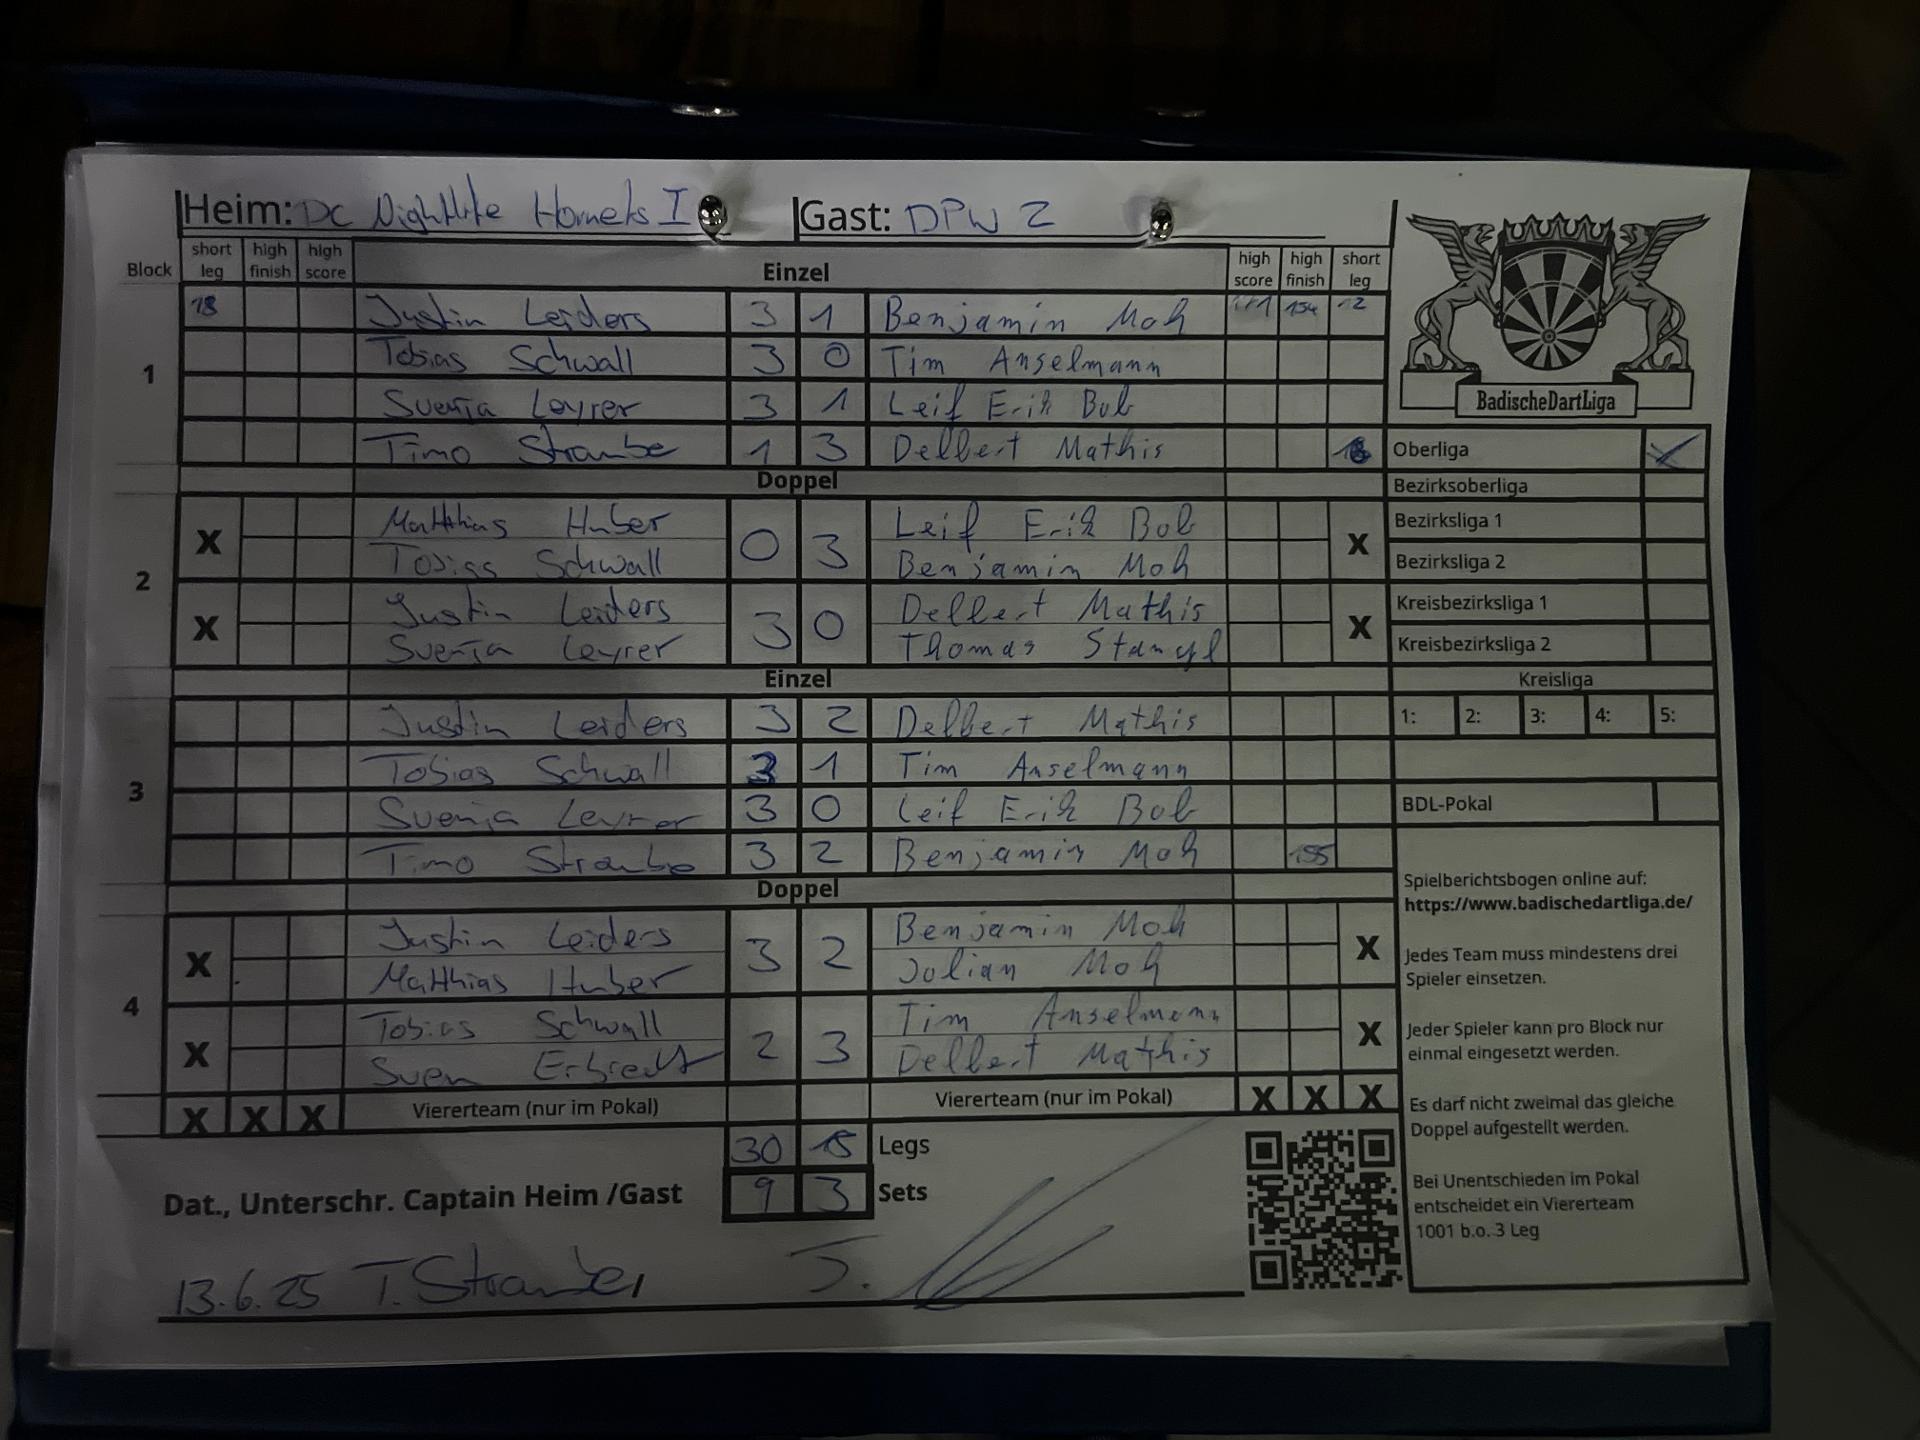 Heim: DC Nightlife Hornets I Gast: DPW 2
Block short leg high finish high score Einzel high score high finish short leg
1
18 Justin Leiders 3 1 Benjamin Moh 171 154 12
Tobias Schwall 3 0 Tim Anselmann
Svenja Leyrer 3 1 Leif Erik Bob
Timo Straube 1 3 Delbert Mathis 18
Doppel
2
X Matthias Huber 0 3 Leif Erik Bob X
Tobias Schwall Benjamin Moh
X Justin Leiders 3 0 Delbert Mathis X
Svenja Leyrer Thomas Stangl
Einzel
3
Justin Leiders 3 2 Delbert Mathis
Tobias Schwall 3 1 Tim Anselmann
Svenja Leyrer 3 0 Leif Erik Bob
Timo Straube 3 2 Benjamin Moh 155
Doppel
4
X Justin Leiders 3 2 Benjamin Moh X
Matthias Huber Julian Moh
X Tobias Schwall 2 3 Tim Anselmann X
Sven Erbrecht Delbert Mathis
X X X Viererteam (nur im Pokal) Viererteam (nur im Pokal) X X X
30 15 Legs
Dat., Unterschr. Captain Heim /Gast 9 3 Sets
13.6.25 T. Straube J.
BadischeDartLiga
Oberliga
Bezirksoberliga
Bezirksliga 1
Bezirksliga 2
Kreisbezirksliga 1
Kreisbezirksliga 2
Kreisliga
1: 2: 3: 4: 5:
BDL-Pokal
Spielberichtsbogen online auf:
https://www.badischedartliga.de/
Jedes Team muss mindestens drei
Spieler einsetzen.
Jeder Spieler kann pro Block nur
einmal eingesetzt werden.
Es darf nicht zweimal das gleiche
Doppel aufgestellt werden.
Bei Unentschieden im Pokal
entscheidet ein Viererteam
1001 b.o. 3 Leg